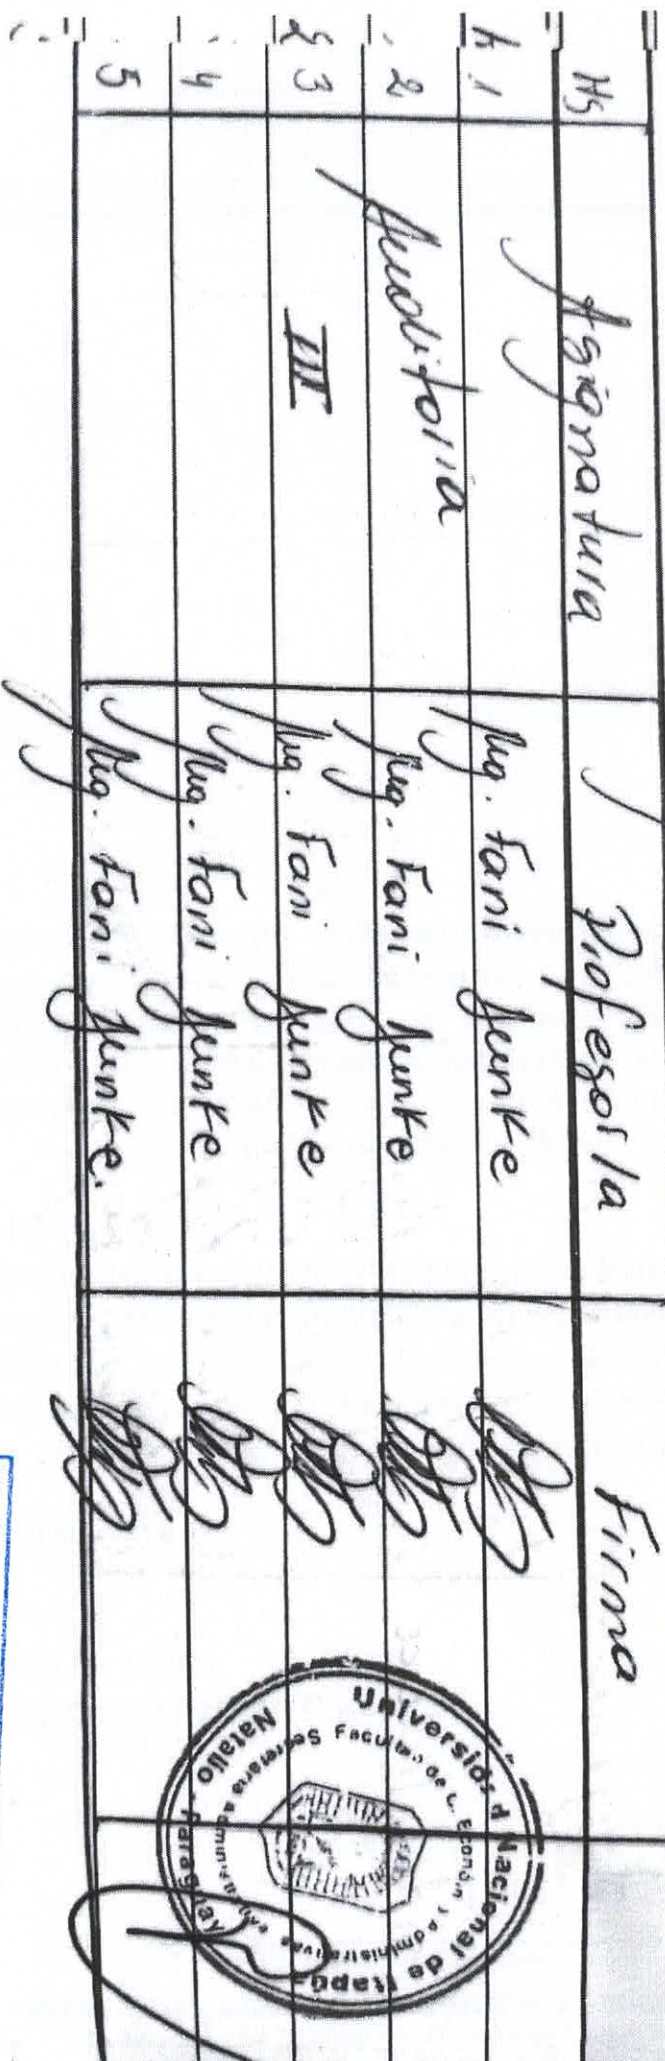 Hs Asignatura Profesor/a Firma
1 Mg. Fani Junke
2 Auditoría Mg. Fani Junke
3 III Mg. Fani Junke
4 Mg. Fani Junke
5 Mg. Fani Junke.
Universidad Nacional de Itapúa
Facultad de C. Económ. y Administrativas
Natalio - Paraguay